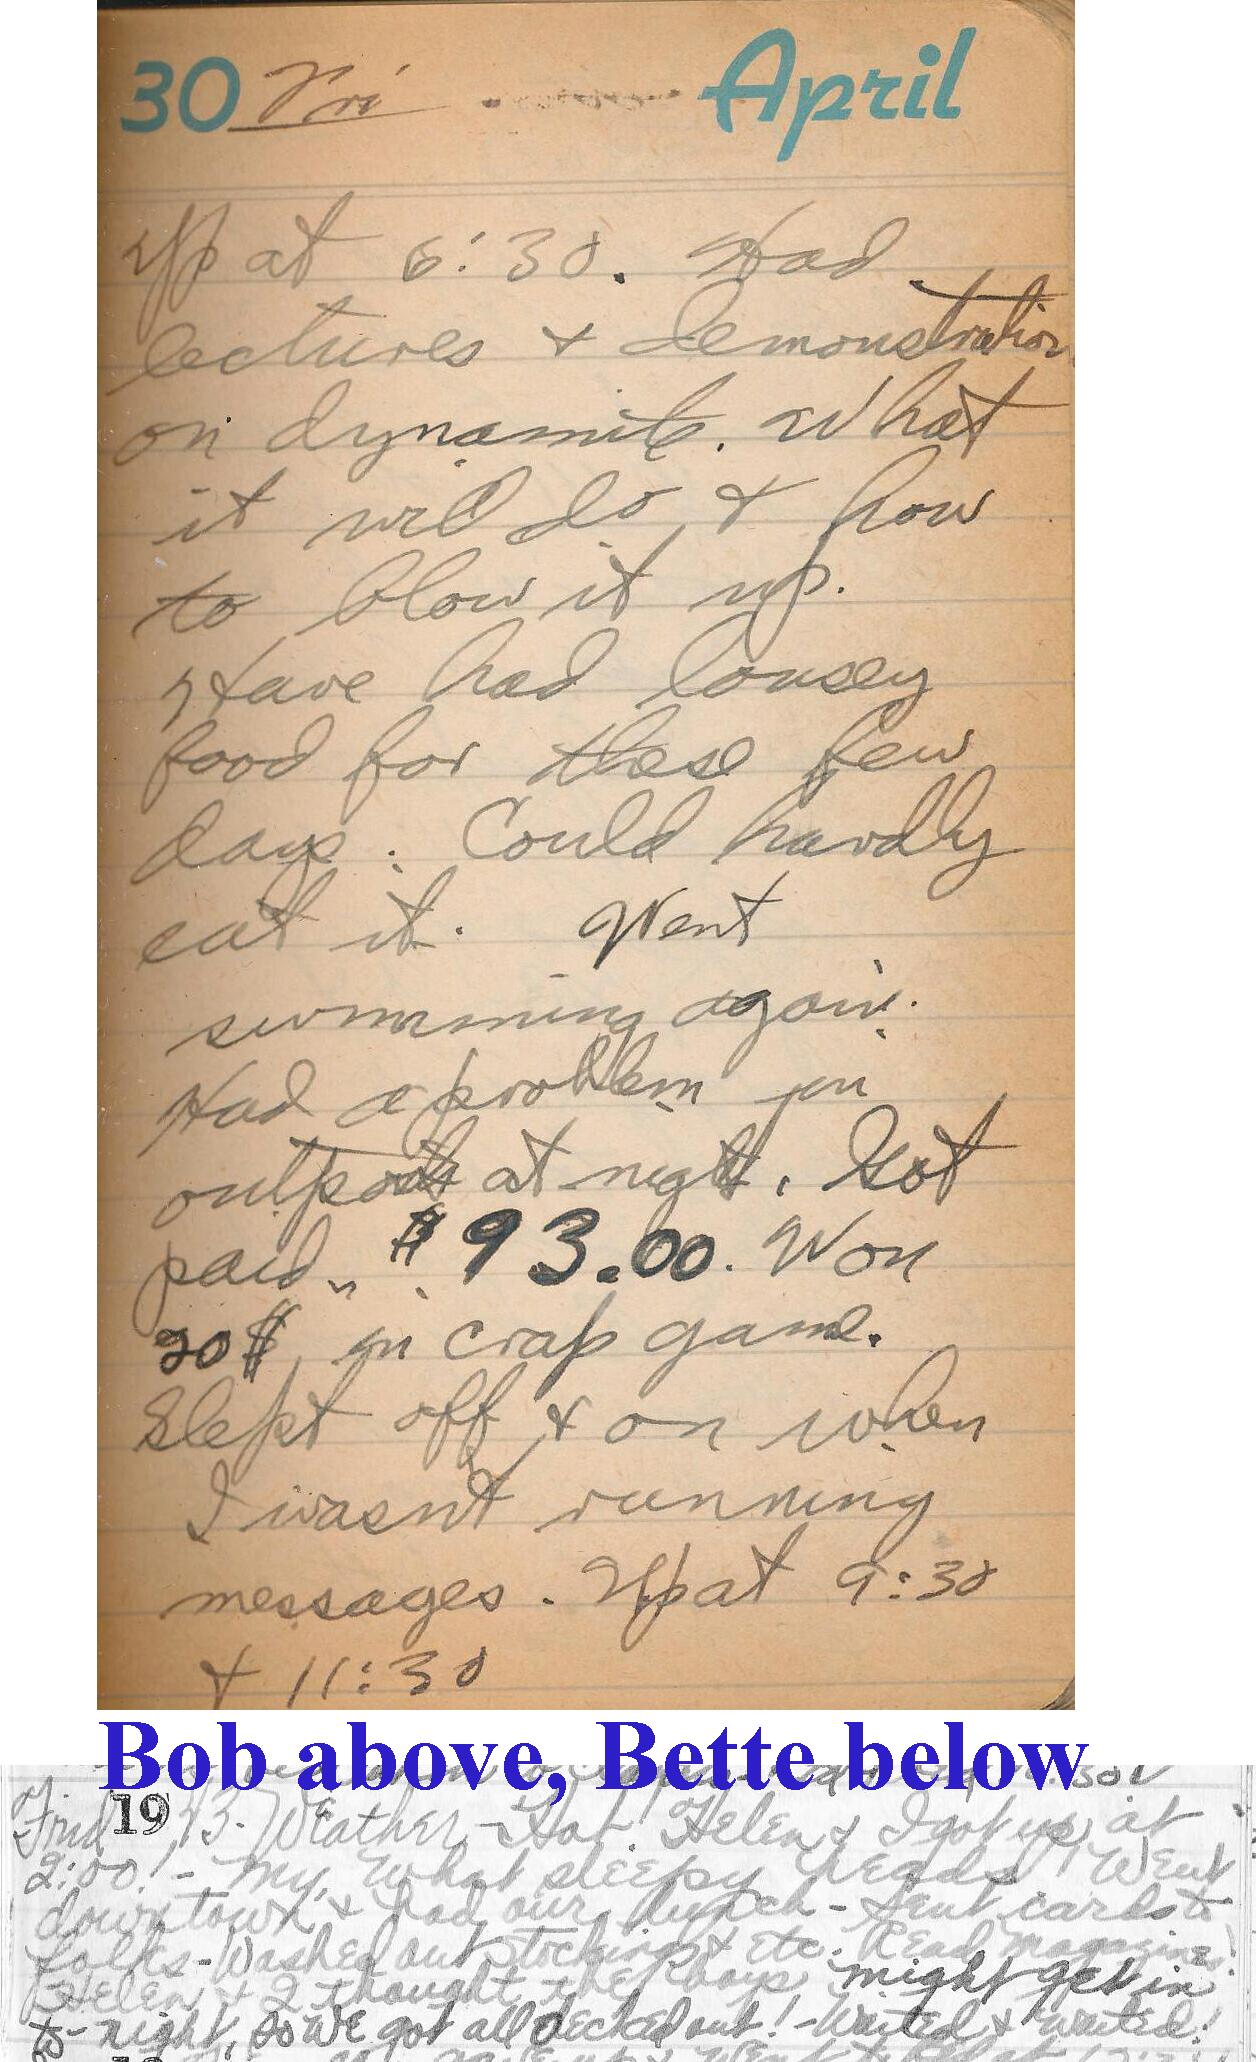 30 Fri April
Up at 6:30. Had
lectures & demonstration
on dynamite. What
it will do & how
to blow it up.
Have had lousey
food for these few
days. Could hardly
eat it. Went
swimming again.
Had a problem in
outposts at night. Got
paid. $93.00. Won
20$ in crap game.
Slept off & on when
I wasn't running
messages. Up at 9:30
& 11:30
Bob above, Bette below
Frid 1943- Weather - Hot! Helen & I got up at
2:00! - My, what sleepy heads! Went
downtown & had our lunch - Sent cards to
folks - Washed out stockings & etc. Read magazines!
Helen & I thought the boys might get in
to-night, so we got all decked out! - Waited & waited!